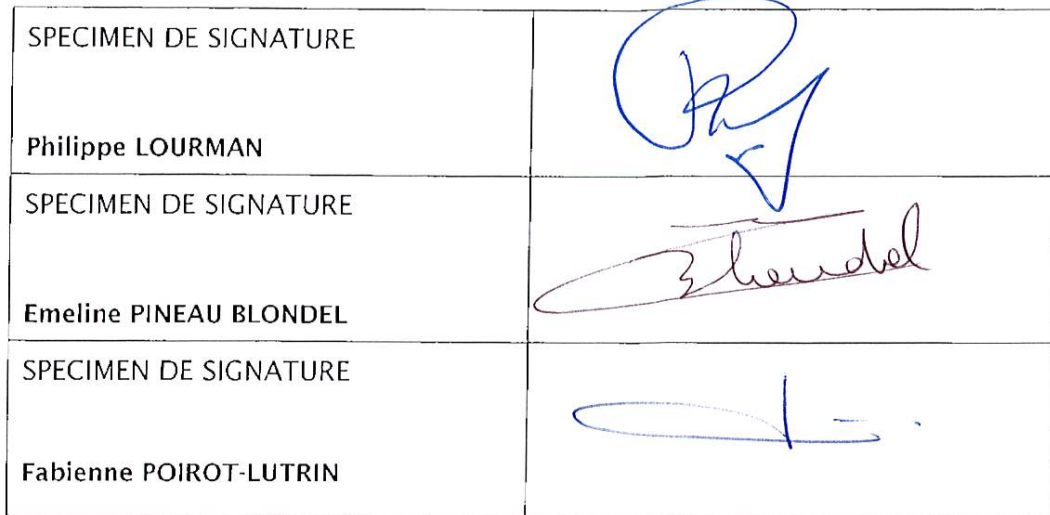 SPECIMEN DE SIGNATURE
Philippe LOURMAN
SPECIMEN DE SIGNATURE
Emeline PINEAU BLONDEL
SPECIMEN DE SIGNATURE
Fabienne POIROT-LUTRIN